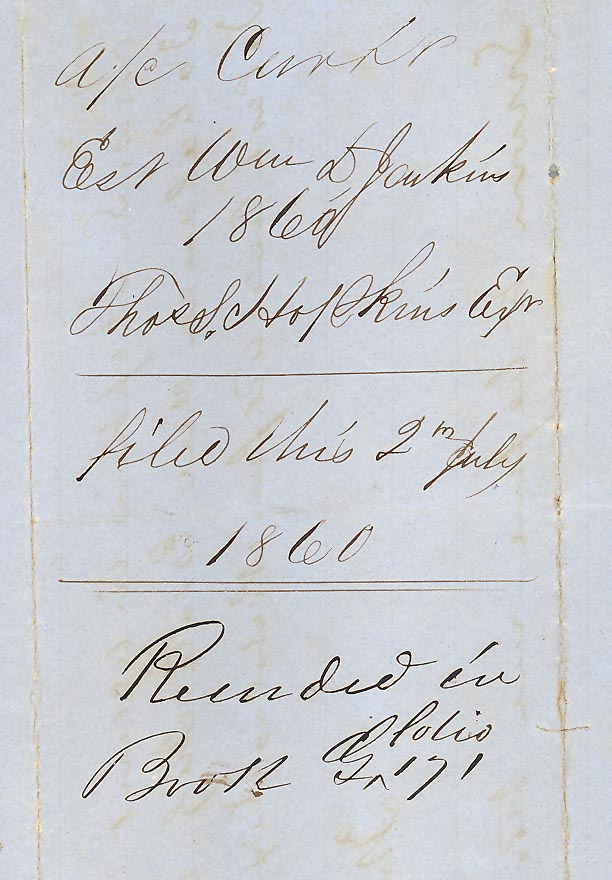 a/c Currt
Est Wm D Jenkins
1860
Thos S. Hopkins Exr
filed this 2nd July
1860
Recorded in
Book G folio 171